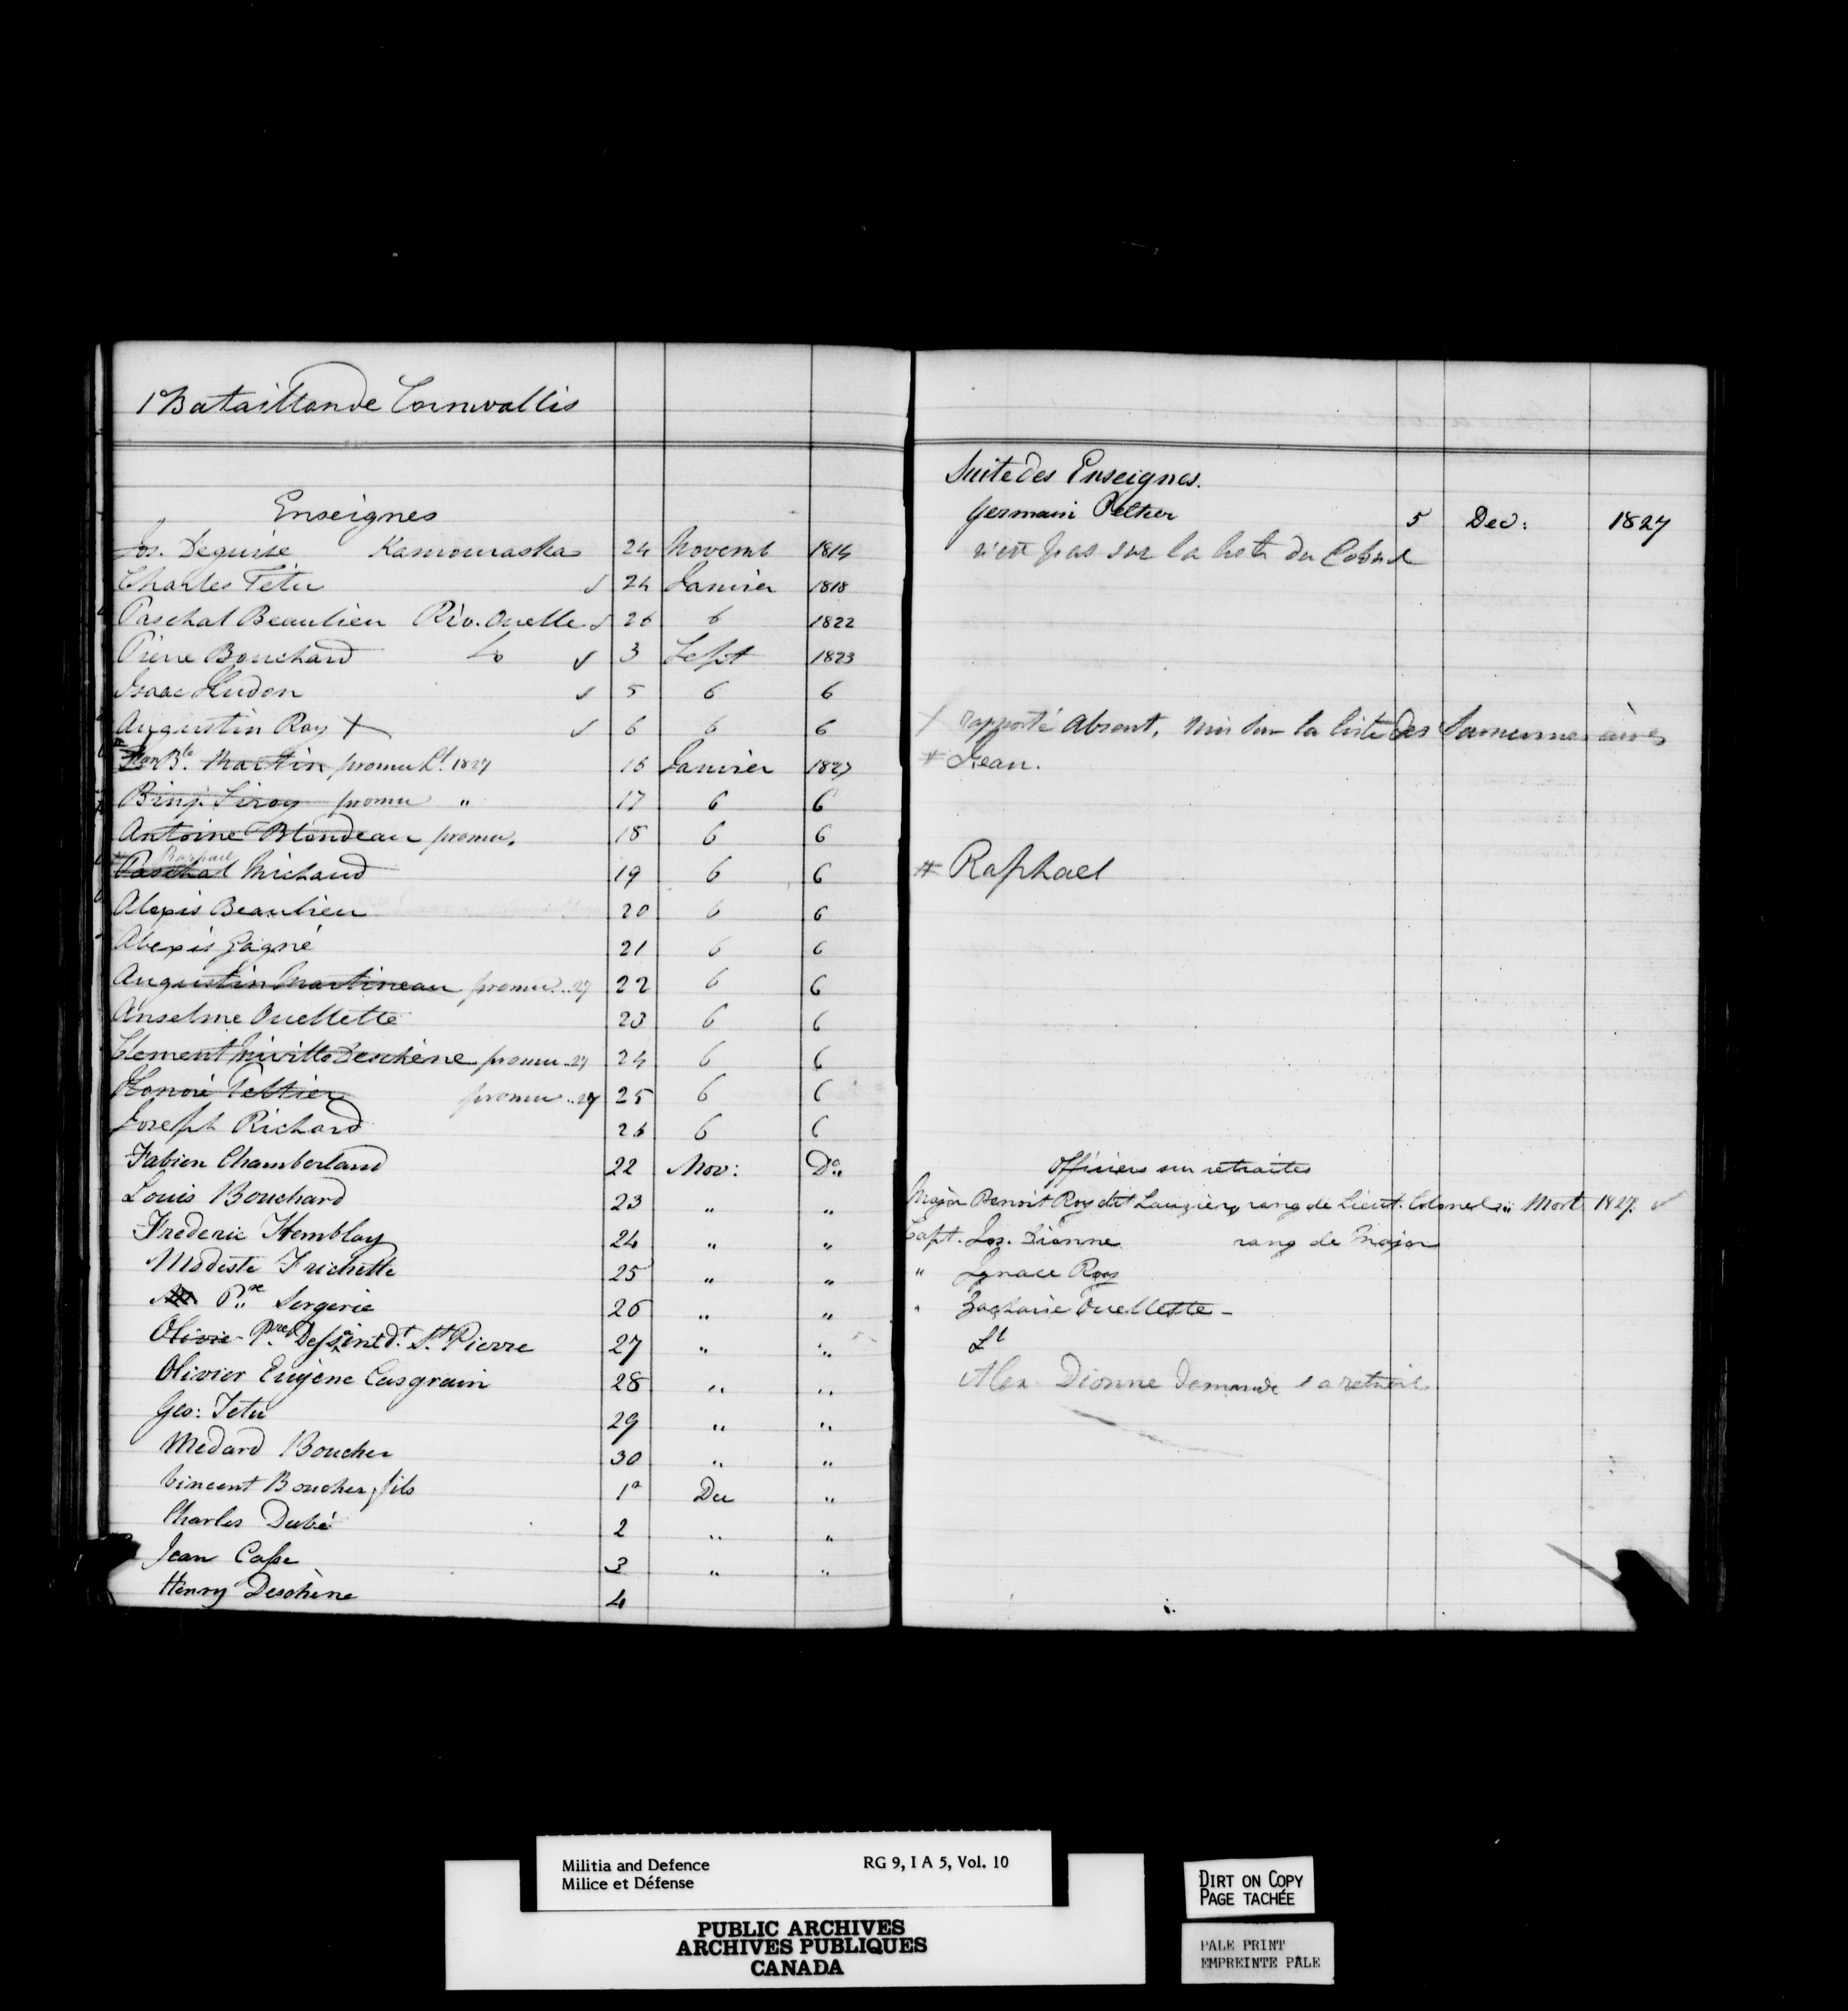 1 Bataillon de Cornwallis
Enseignes
Jos. Deguise Kamouraska 24 Novemb 1814
Charles Tétu ✓ 24 Janvier 1818
Paschal Beaulieu Riv. Ouelle ✓ 26 6 1822
Pierre Bouchard Do ✓ 3 Sept 1823
Isaac Hudon ✓ 5 6 6
Augustin Roy X ✓ 6 6 6
Bte. Martin promu Lt. 1827 16 Janvier 1827
Binj. Siroy promu " 17 6 6
Antoine Blondeau promu. 18 6 6
Raphael
Paschal Michaud 19 6 6
Alexis Beaulieu 20 6 6
Alexis Gagné 21 6 6
Augustin Martineau promu..27 22 6 6
Anselme Ouellette 23 6 6
Clement Miville Deschène promu..27 24 6 6
Honoré Peltier promu..27 25 6 6
Joseph Richard 26 6 6
Fabien Chamberland 22 Nov: Do..
Louis Bouchard 23 " "
Frederic Hemblay 24 " "
Modeste Frichette 25 " "
P.re Sergerie 26 " "
Olivie P.re Dessaint dt. St. Pierre 27 " "
Olivier Eugène Casgrain 28 " "
Geo: Tetu 29 " "
Medard Boucher 30 " "
Vincent Boucher, fils 1r Dec "
Charles Dubé 2 " "
Jean Casse 3 " "
Henry Deschène 4
Suite des Enseignes.
Germain Peltier 5 Dec: 1827
n'est pas sur la liste du Colonel
X rapporté Absent, mis sur la liste des Surnumeraires
# Jean.
# Raphael
Officiers sur retraites
Major Benoit Roy dit Lauzier, rang de Lieut. Colonel .. Mort 1827. ✓
Capt. Jos. Dionne rang de Major
" Ignace Roy
" Zacharie Ouellette -
Lt
Alex. Dionne demande sa retraite
Militia and Defence RG 9, I A 5, Vol. 10
Milice et Défense
PUBLIC ARCHIVES
ARCHIVES PUBLIQUES
CANADA
DIRT ON COPY
PAGE TACHÉE
PALE PRINT
EMPREINTE PÂLE